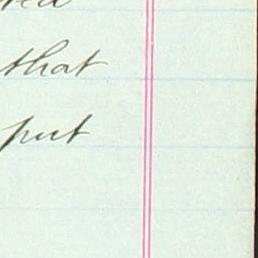 that
put